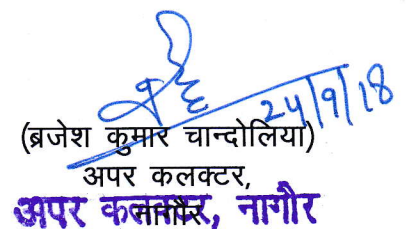 24/9/18
(ब्रजेश कुमार चान्दोलिया)
अपर कलक्टर,
नागौर
अपर कलक्टर, नागौर